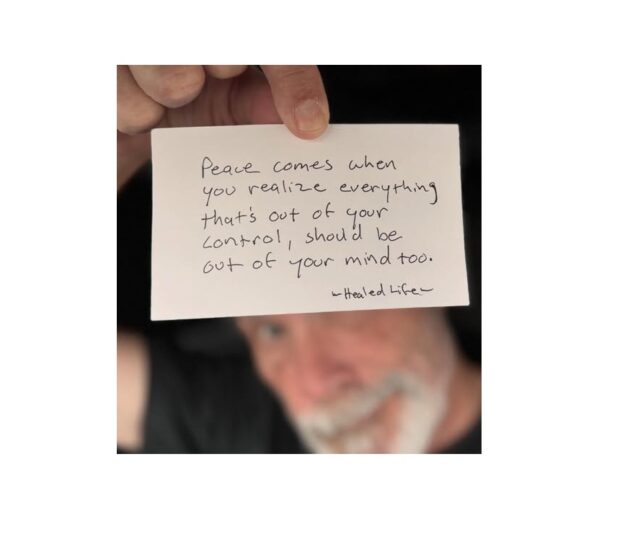 Peace comes when
you realize everything
that's out of your
control, should be
out of your mind too.
~Healed Life~